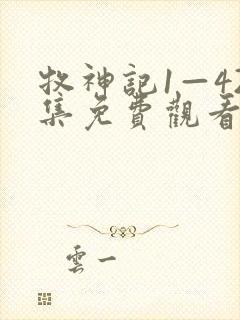 牧神記1—47
集免費觀看
雲一